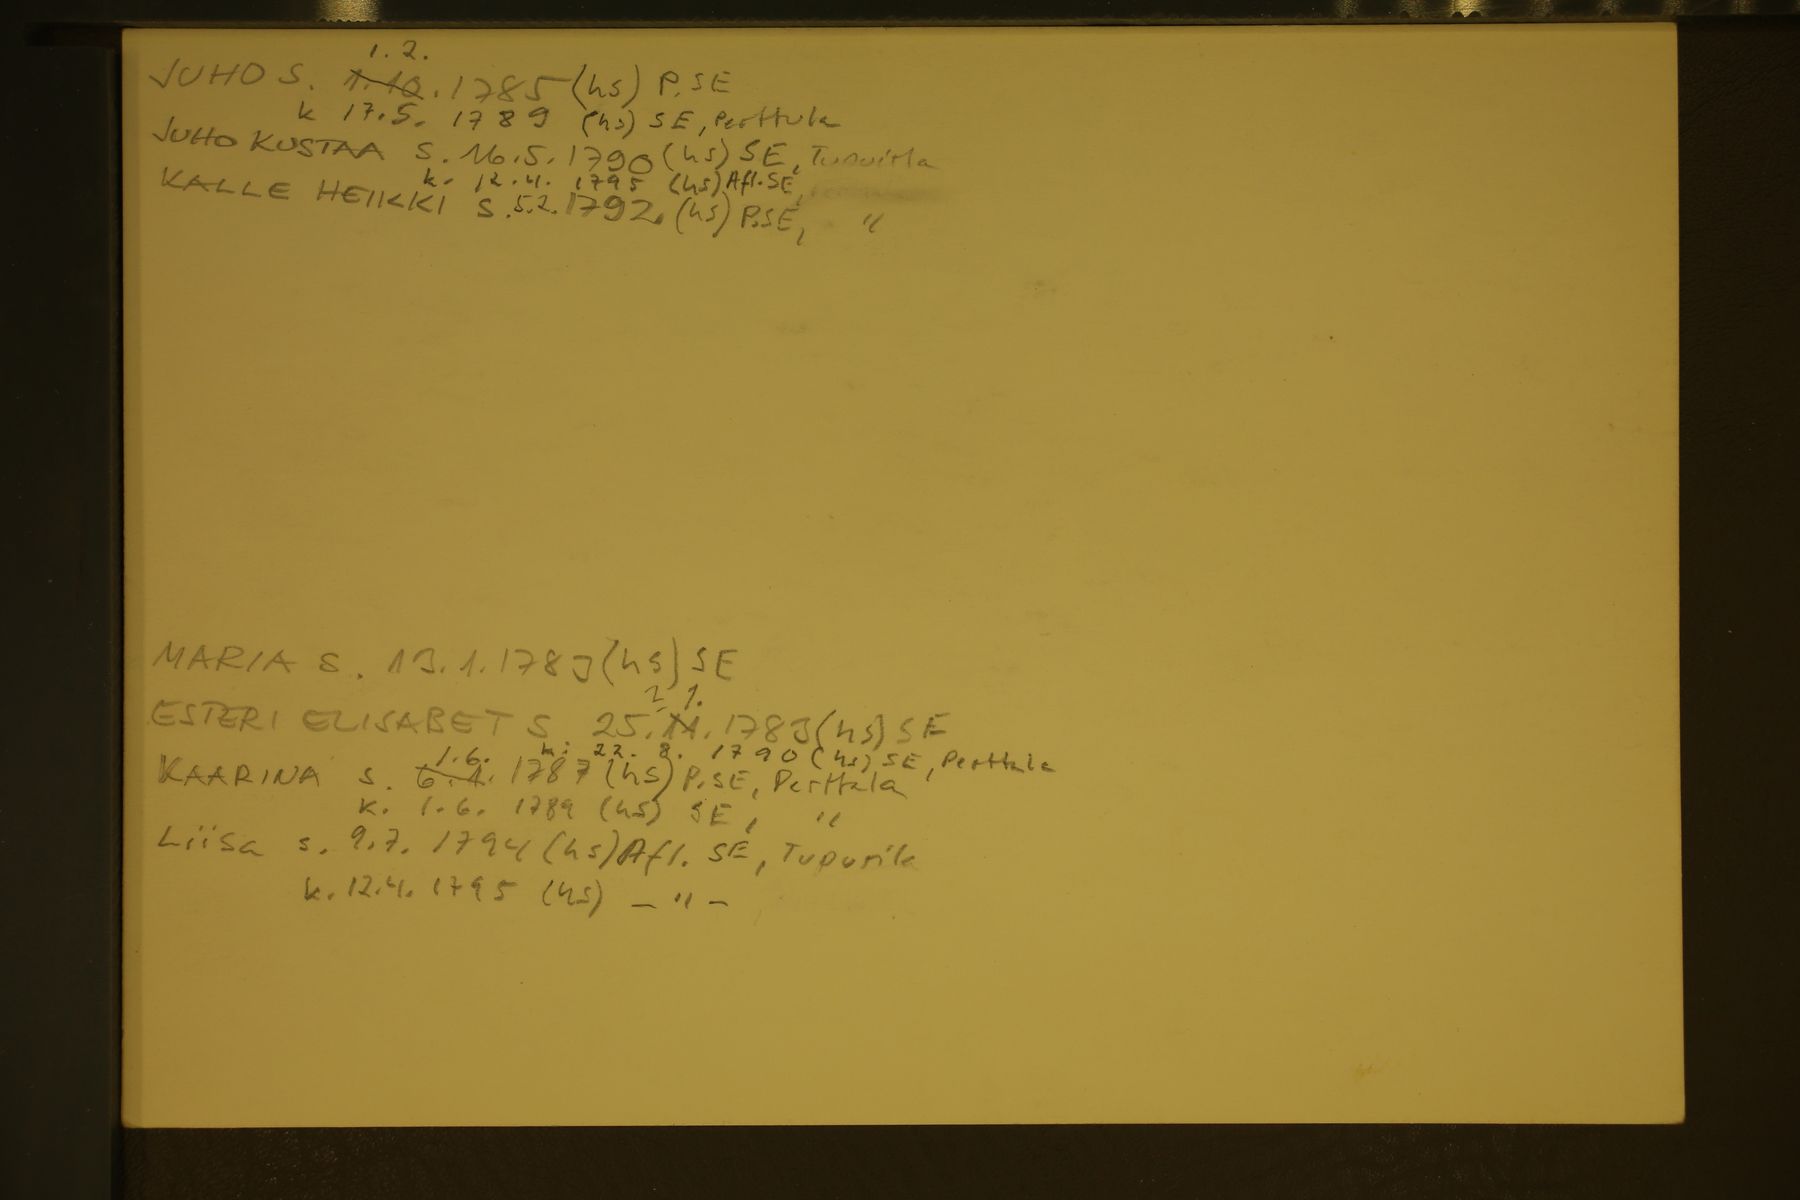 1.2.
JUHO S. 1.10.1785 (hs) P.SE
k 17.5. 1789 (hs) SE, Perttula
JUHO KUSTAA S. 16.5.1790 (hs) SE,
k. 12.4. 1795 (hs) Afl.SE,
KALLE HEIKKI S. 5.2.1792 (hs) P.SE, "
MARIA S. 13.1.1783 (hs) SE
2 1.
ESTERI ELISABET S. 25.11.1783 (hs) SE
1.6. k. 22. 8. 1790 (hs) SE, Perttula
KAARINA S. 6.1. 1787 (hs) P.SE, Perttula
k. 1.6. 1789 (hs) SE, "
Liisa s. 9.7. 1794 (hs) Afl. SE, Tupurila
k. 12.4. 1795 (hs) – " –